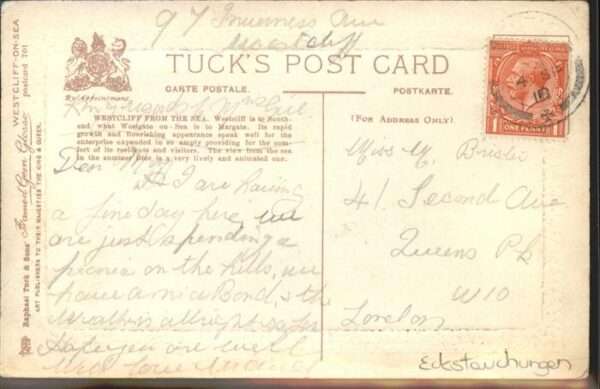 97 Inverness Ave
Westcliff
TUCK'S POST CARD
CARTE POSTALE.
POSTKARTE.
By Appointment
WESTCLIFF FROM THE SEA. Westcliff is to South-
end what Westgate-on-Sea is to Margate. Its rapid
growth and flourishing appearance speak well for the
enterprise expended in so amply providing for the com-
fort of its residents and visitors. The view from the sea
in the summer time is a very lively and animated one.
(FOR ADDRESS ONLY)
Dear
& I are having
a fine day here, we
are just spending a
on the hills, we
have a Band, & the
is alright so far
Hope you are well
With love
Miss M.
41 Second Ave
Queens Pk
W10
London
ONE PENNY
Eckstauchungen
Raphael Tuck & Sons' "Framed Gem Glosso" WESTCLIFF-ON-SEA postcard 701
ART PUBLISHERS TO THEIR MAJESTIES THE KING & QUEEN.